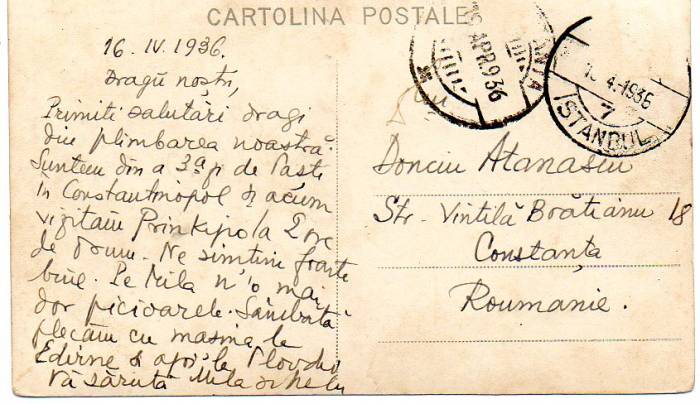 CARTOLINA POSTALE
16. IV. 1936.
Dragii noștri,
Primiți salutări dragi
din plimbarea noastră.
Suntem din a 3ª zi de Paști
în Constantinopol și acum
vizităm Prinkipo la 2 ore
de drum. Ne simțim foarte
bine. Pe Mila n'o mai
dor picioarele. Sâmbătă
plecăm cu mașina la
Edirne & apoi la Plovdiv
Vă sărută Mila și
Donciu Atanasiu
Str. Vintilă Brătianu 18
Constanța
Roumanie.
APR 936
ANȚA
1936
7
ISTANBUL